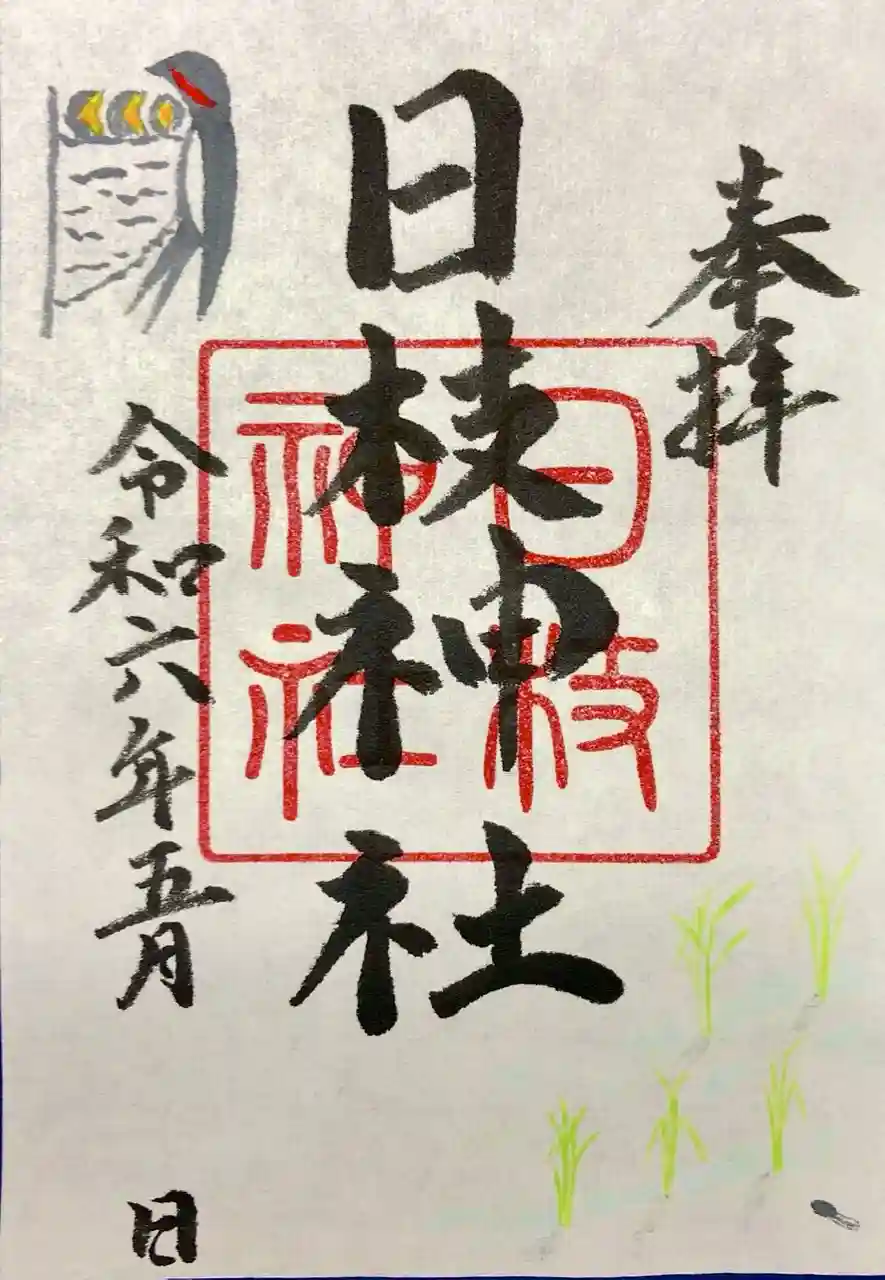 奉拝
日枝神社
日枝神社
令和六年五月 日